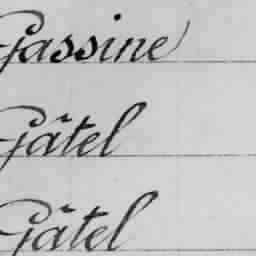 Gassine
Gätel
Gätel